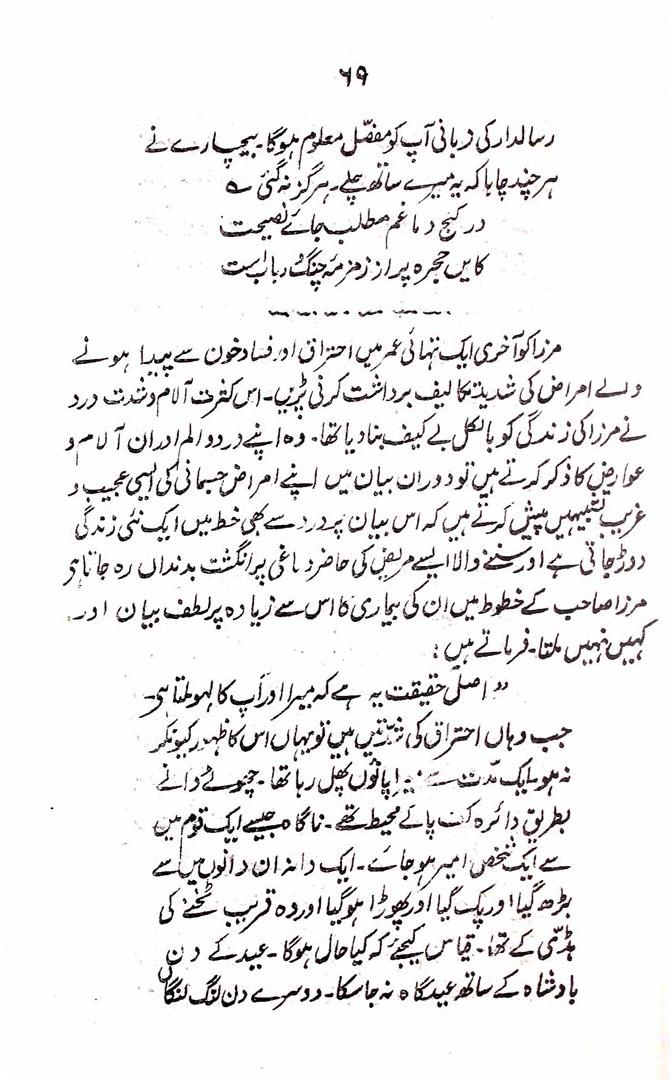 ۶۹
رسالدار کی زبانی آپ کو مفصّل معلوم ہوگا۔ بیچارے نے
ہر چند چاہا کہ یہ میرے ساتھ چلے۔ ہرگز نہ گئی ؎
در کنج دماغم مطلب جائے نصیحت
کایں حجرہ پر از زمزمۂ چنگ و رباب است
مرزا کو آخری ایک تہائی عمر میں احتراق اور فساد خون سے پیدا ہونے
والے امراض کی شدید تکالیف برداشت کرنی پڑیں۔ اس کثرت آلام و شدت درد
نے مرزا کی زندگی کو بالکل بے کیف بنا دیا تھا۔ وہ اپنے درد و الم اور ان آلام و
عوارض کا ذکر کرتے ہیں تو دوران بیان میں اپنے امراض جسمانی کی ایسی عجیب و
غریب تشبیہیں پیش کرتے ہیں کہ اس بیان پر درد سے بھی خط میں ایک نئی زندگی
دوڑ جاتی ہے اور سننے والا ایسے مریض کی حاضر دماغی پر انگشت بدنداں رہ جاتا ہی
مرزا صاحب کے خطوط میں ان کی بیماری کا اس سے زیادہ پر لطف بیان اور
کہیں نہیں ملتا۔ فرماتے ہیں:
"اصلی حقیقت یہ ہے کہ میرا اور آپ کا لہو ملتا ہی۔
جب وہاں احتراق کی شدّتیں ہیں تو یہاں اس کا ظہور کیونکر
نہ ہو۔ ایک مدّت سے میرا پانوں پھل رہا تھا۔ چھوٹے دانے
بطریق دائرہ کف پائے محیط تھے۔ ناگاہ جیسے ایک قوم میں
سے ایک شخص امیر ہو جائے۔ ایک دانہ ان دانوں میں سے
بڑھ گیا اور پک گیا اور پھوڑا ہو گیا اور وہ قریب ٹخنے کی
ہڈّی کے تھا۔ قیاس کیجئے کہ کیا حال ہوگا۔ عید کے دن
بادشاہ کے ساتھ عیدگاہ نہ جا سکا۔ دوسرے دن لنگ لنگاں